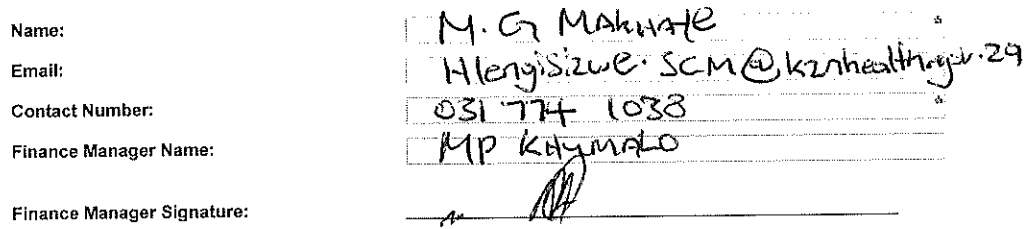 Name: M. G MAKHAYE
Email: Hlengisizwe.SCM@kznhealth.gov.za
Contact Number: 031 774 1038
Finance Manager Name: MP KHUMALO
Finance Manager Signature: